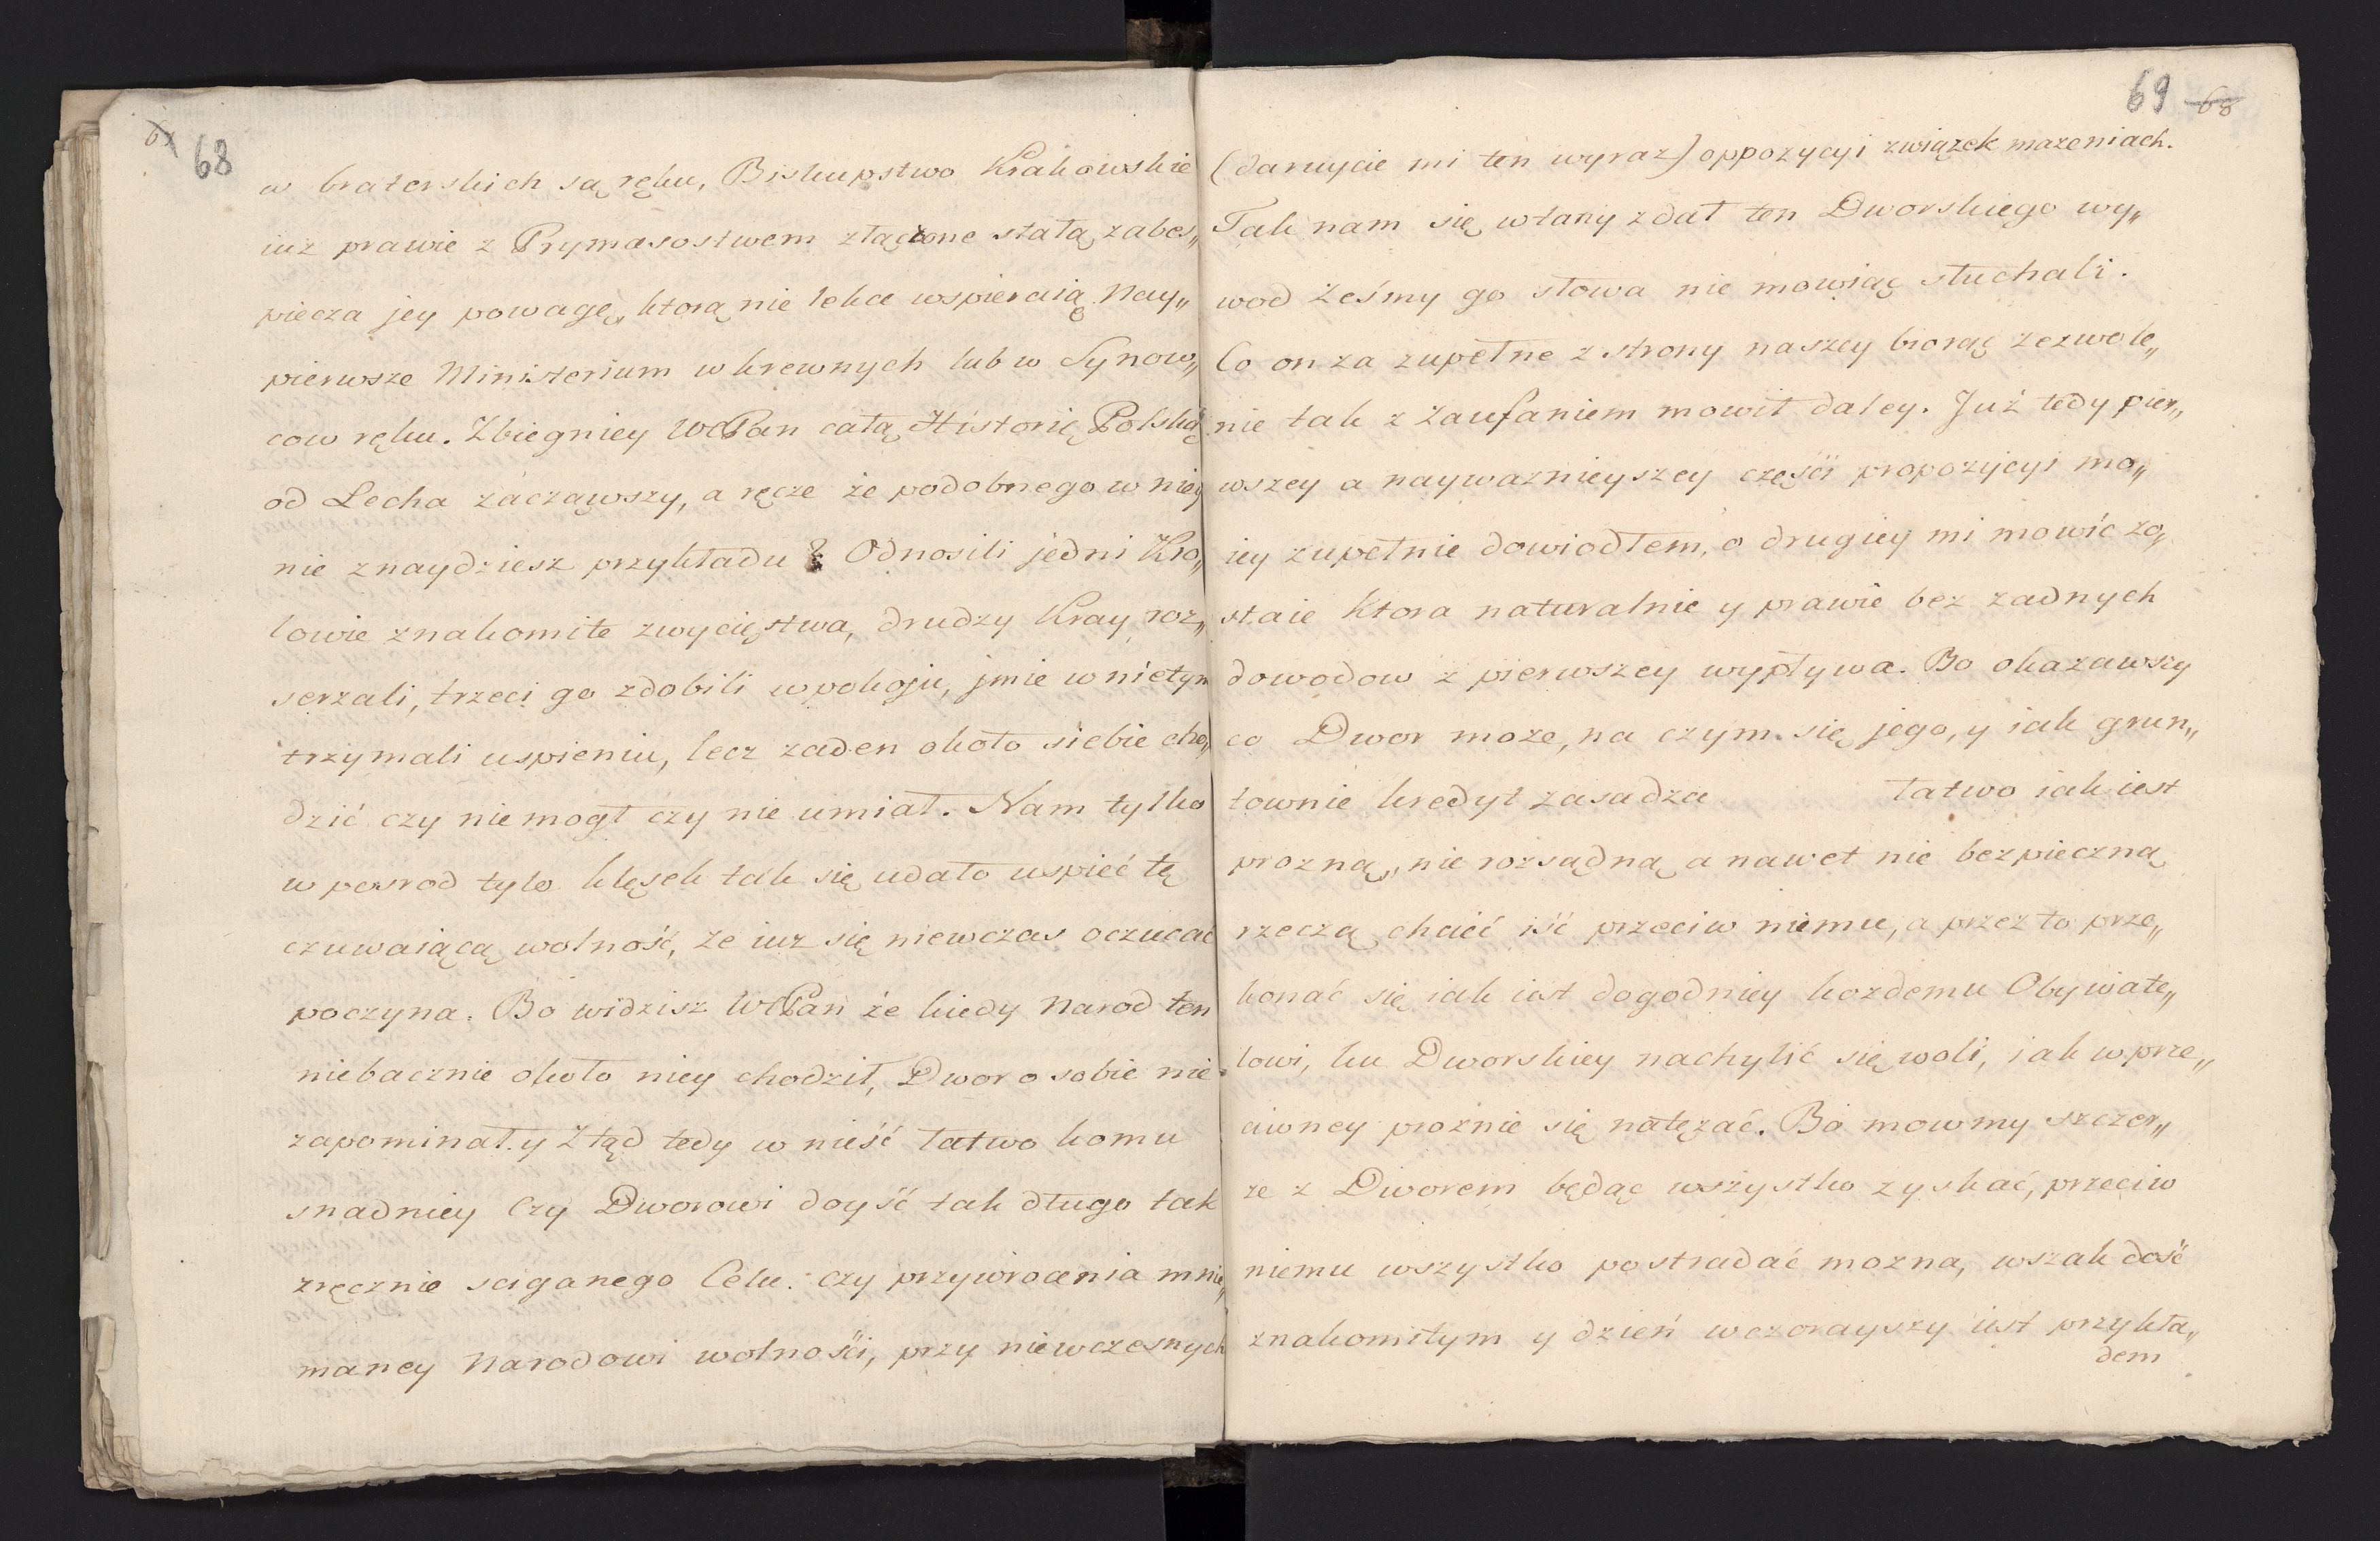 68
w braterskich są ręku, Biskupstwo Krakowskie
iuz prawie z Prymasostwem złączone stałą zabes„
piecza jey powagę, ktorą nie lekce wspieraią Nay„
pierwsze Ministerium w krewnych lub w Synow„
cow ręku. Zbiegniey WćPan całą Historię Polską
od Lecha zacząwszy, a ręcze że podobnego w niey
nie znaydziesz przykładu? Odnosili jedni Kro„
lowie znakomite zwycięstwa, drudzy Kray roz„
serzali, trzeci go zdobili w pokoju, jnnie w nietym
trzymali uspieniu, lecz zaden około siebie cho„
dzić czy niemogł czy nie umiał. Nam tylko
w posrod tylo klęsek tak się udało uspieć tę
czuwaiącą wolność, ze iuz się niewczas oczucać
poczyna. Bo widzisz WćPan że kiedy Narod ten
niebacznie około niey chodził, Dwor o sobie nie
zapominał. y Ztąd tedy w nieść łatwo komu
snadniey Czy Dworowi doyść tak długo tak
zręcznie sciganego Celu: czy przywrocenia mnie„
maney Narodowi wolności, przy niewczesnych
69 68
(daruycie mi ten wyraz) oppozycyi związek mazeniach.
Tak nam się własny zdał ten Dworskiego wy„
wod żeśmy go słowa nie mowiąc słuchali.
Co on za zupełne z strony naszey biorąc zezwole„
nie tak z Zaufaniem mowił daley. Już tedy pier„
wszey a naywaznieyszey części propozycyi mo„
iey zupełnie dowiodłem, o drugiey mi mowić zo„
staie ktora naturalnie y prawie bez zadnych
dowodow z pierwszey wypływa. Bo okazawszy
co Dwor moze, na czym się jego, y iak grun„
townie kredyt zasadza łatwo iak iest
prozną, nie rozsądną a nawet nie bezpieczną
rzeczą chcieć iść przeciw niemu, a przez to prze„
konać się iak iest dogodniey kozdemu Obywate„
lowi, ku Dworskiey nachylić się woli, iak w prze„
ciwney proznie się natęzać. Bo mowmy szczer„
ze z Dworem będąc wszystko zyskać, przeciw
niemu wszystko postradać mozna, wszak dość
znakomitym y dzień wczorayszy iest przykła„
dem